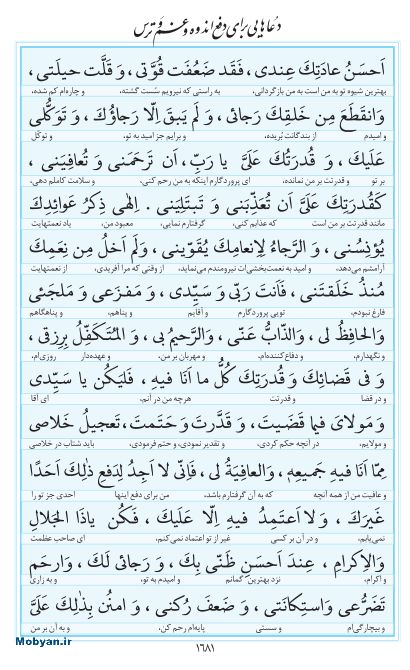 دعاهایی برای دفع اندوه و غم و ترس
اَحسَنُ عادَتِكَ عِندی، فَقَد ضَعُفَت قُوَّتی، وَ قَلَّت حیلَتی،
بهترین شیوه تو به من است به من بازگردانی، به راستی که نیرویم سُست گشته، و چاره‌ام کم شده،
وَانقَطَعَ مِن خَلقِكَ رَجائی، وَ لَم یَبقَ اِلّا رَجاؤُكَ، وَ تَوَكُّلی
و امیدم از بندگانت بُریده، و برایم جز امید به تو، و توکّل
عَلَیكَ، وَ قُدرَتُكَ عَلَیَّ یا رَبِّ، اَن تَرحَمَنی وَ تُعافِیَنی،
بر تو و قدرتت بر من نمانده، ای پروردگارم اینکه به من رحم کنی، و سلامت کاملم دهی،
كَقُدرَتِكَ عَلَیَّ اَن تُعَذِّبَنی وَ تَبتَلِیَنی. اِلٰهی ذِكرُ عَوائِدِكَ
مانند قدرتت بر من است که عذابم کنی، گرفتارم نمایی، معبود من، یاد نعمتهایت
یُؤنِسُنی، وَ الرَّجاءُ لِاِنعامِكَ یُقَوّینی، وَ لَم اَخلُ مِن نِعَمِكَ
آرامشم می‌دهد، و امید به نعمت‌بخشی‌ات نیرومندم می‌نماید، از وقتی که مرا آفریدی، از نعمتهایت
مُنذُ خَلَقتَنی، فَاَنتَ رَبّی وَ سَیِّدی، وَ مَفزَعی وَ مَلجَئی
فارغ نبودم، تویی پروردگارم و آقایم و پناهم، و پناهگاهم
وَالحافِظُ لی، وَ الذّابُّ عَنّی، وَالرَّحیمُ بی، وَ المُتَكَفِّلُ بِرِزقی،
و نگهدارم، و دفاع‌کننده‌ام، و مهربان بر من، و عهده‌دار روزی‌ام،
وَ فی قَضائِكَ وَ قُدرَتِكَ كُلُّ ما اَنَا فیهِ، فَلیَكُن یا سَیِّدی
و در قضا و قدرتت هرچه من در آنم، ای آقا
وَ مَولایَ فیما قَضَیتَ، وَ قَدَّرتَ وَ حَتَمتَ، تَعجیلُ خَلاصی
و مولایم، در آنچه حکم کردی، و تقدیر نمودی، و حتم فرمودی، باید شتاب در خلاصی
مِمّا اَنَا فیهِ جَمیعِهِ، وَالعافِیَةُ لی، فَاِنّی لا اَجِدُ لِدَفعِ ذٰلِكَ اَحَدًا
و عافیت من از همه آنچه که به آن گرفتارم باشد، من برای دفع اینها احدی جز تو را
غَیرَكَ، وَ لا اَعتَمِدُ فیهِ اِلّا عَلَیكَ، فَكُن یاذَا الجَلالِ
نمی‌یابم، و در آن بر کسی غیر از تو اعتماد نمی‌کنم، ای صاحب عظمت
وَالاِكرامِ، عِندَ اَحسَنِ ظَنّی بِكَ، وَ رَجائی لَكَ، وَارحَم
و اکرام، نزد بهترین گمانم و امیدم به تو، و به زاری
تَضَرُّعی وَاستِكانَتی، وَ ضَعفَ رُكنی، وَ امنُن بِذٰلِكَ عَلَیَّ
و بیچارگی‌ام و سستی پایه‌ام رحم کن، و به آن بر من
Mobyan.ir
۱۶۸۱